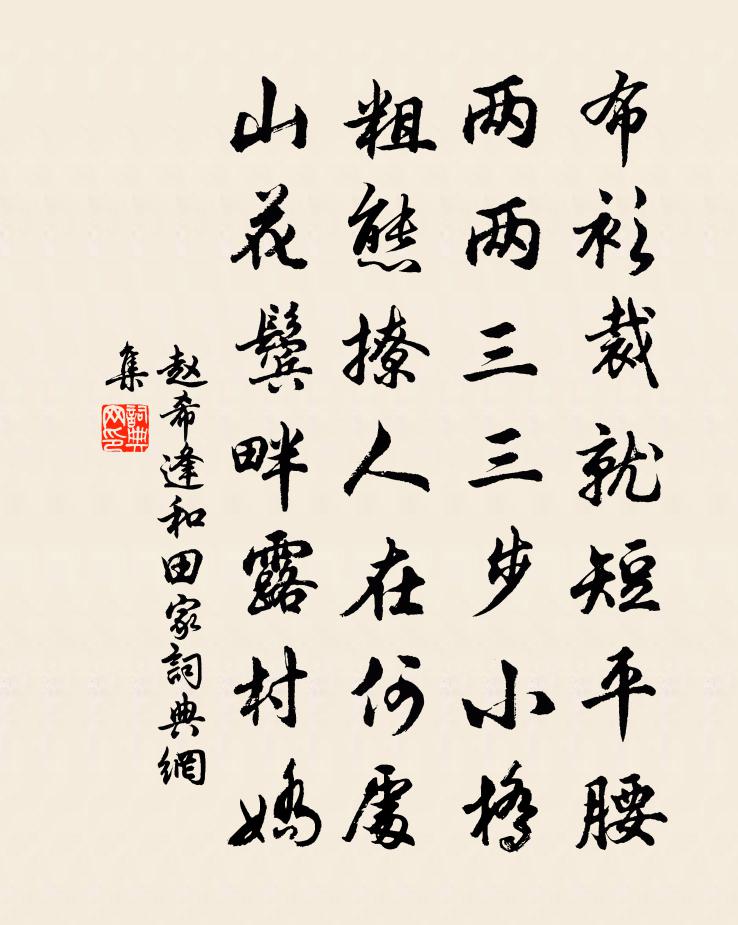 布衫裁就短平腰
两两三三步小橋
粗態撩人在何處
山花鬓畔露村嬌
赵希逢和田家詞典網
集
詞典网印